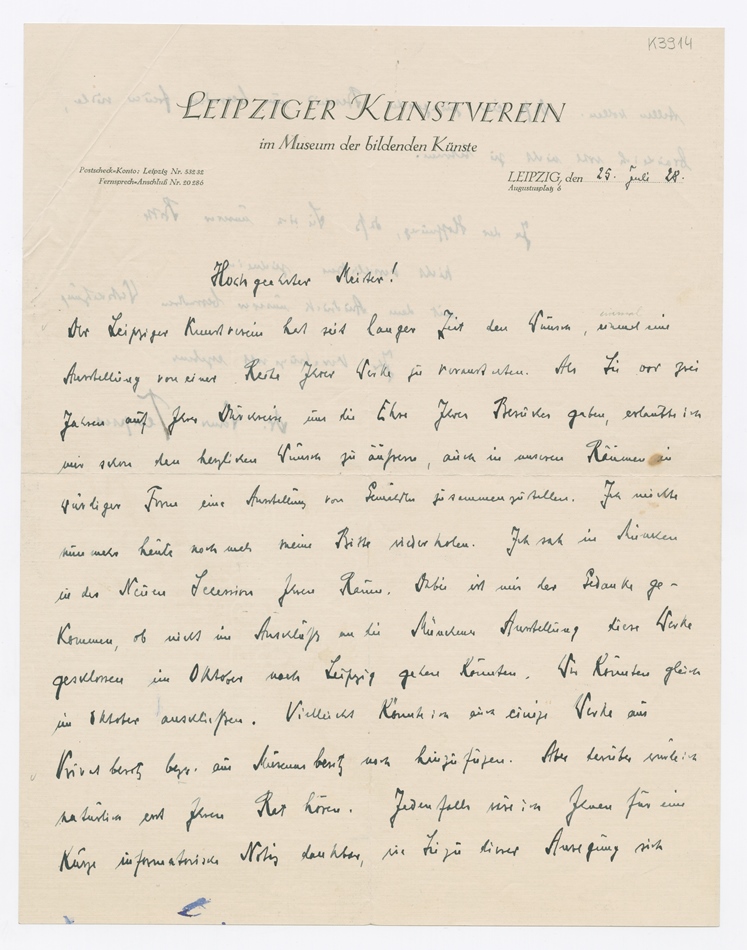 K3914
LEIPZIGER KUNSTVEREIN
im Museum der bildenden Künste
Postscheck-Konto: Leipzig Nr. 53232
Fernsprech-Anschluß Nr. 20286
LEIPZIG, den 25. Juli 28.
Augustusplatz 6
Hochgeehrter Meister!
Der Leipziger Kunstverein hat seit langer Zeit den Wunsch, einmal eine
Ausstellung von einer Reihe Ihrer Werke zu veranstalten. Als Sie vor zwei
Jahren auf Ihrer Durchreise uns die Ehre Ihres Besuches gaben, erlaubte ich
mir schon den herzlichen Wunsch zu äußern, auch in unseren Räumen in
würdiger Form eine Ausstellung von Gemälden zusammenzustellen. Ich möchte
nunmehr heute nochmals meine Bitte wiederholen. Ich sah in München
in der Neuen Secession Ihren Raum. Dabei ist mir der Gedanke ge-
kommen, ob nicht im Anschluß an die Münchner Ausstellung diese Werke
geschlossen im Oktober nach Leipzig gehen könnten. Wir könnten gleich
im Oktober anschließen. Vielleicht könnte ich auch einige Werke aus
Privatbesitz bezw. aus Museumsbesitz noch hinzufügen. Aber darüber würde ich
natürlich erst Ihren Rat hören. Jedenfalls wäre ich Ihnen für eine
kurze informatorische Notiz dankbar, wie Sie zu dieser Anregung sich